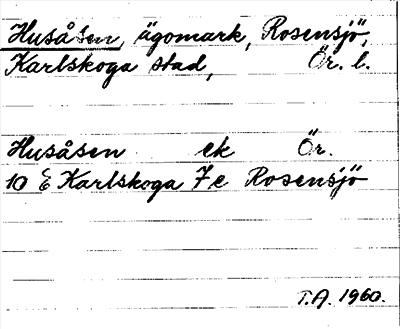 Husåsen, ägomark, Rosensjö,
Karlskoga stad, Ör. l.
Husåsen ek Ör.
10 E Karlskoga 7e Rosensjö
T.A. 1960.